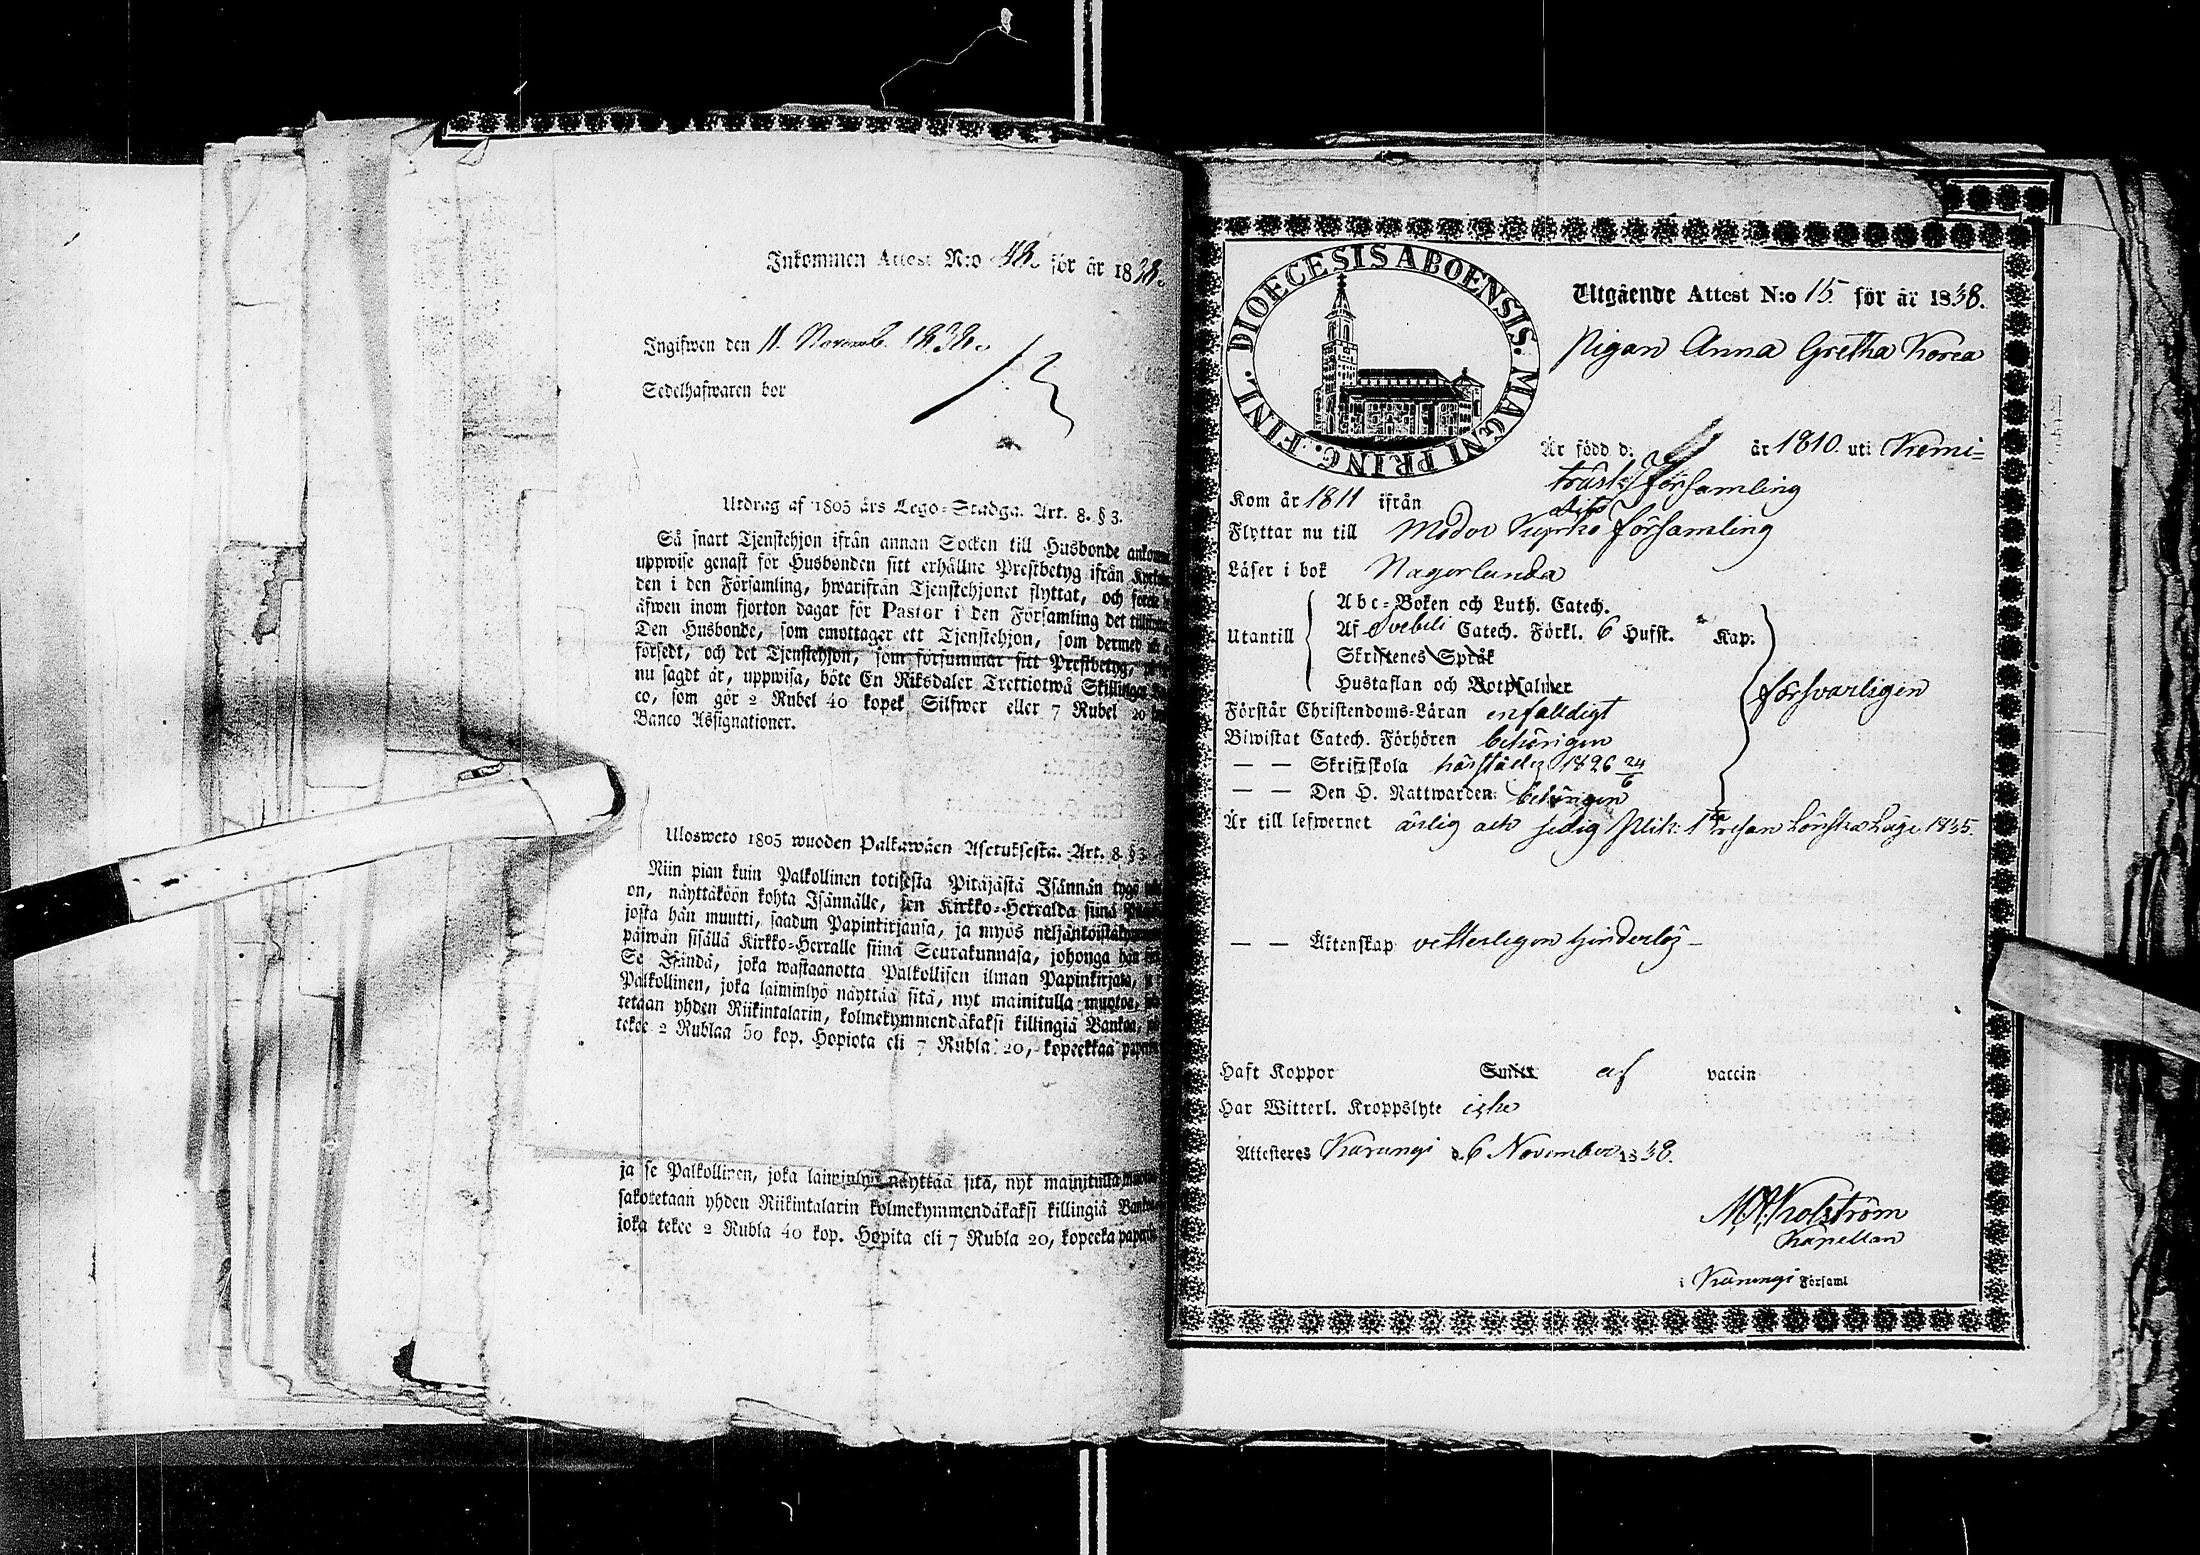 Inkommen Attest N:o 48. för år 1838.
Ingifwen den 11. Novemb. 1838.
Sedelhafwaren bor
Utdrag af 1805 års Lego-Stadga. Art. 8. § 3.
Så snart Tjenstehjon ifrån annan Socken till Husbonde
uppwise genast för Husbonden sitt erhållne Prestbetyg ifrån
den i den Församling, hwarifrån Tjenstehjonet flyttat, och
äfwen inom fjorton dagar för Pastor i den Församling det
Den Husbonde, som emottager ett Tjenstehjon, som dermed
försedt, och det Tjenstehjon, som försummar sitt Prestbetyg,
nu sagdt är, uppwisa, böte En Riksdaler Trettiotwå Skillingar
co, som gör 2 Rubel 40 kopek Silfwer eller 7 Rubel 20
Banco Assignationer.
Ulosweto 1805 wuoden Palkawäen Asetuksesta. Art. 8 § 3
Niin pian kuin Palkollinen totisesta Pitäjästä Isännän tygö
on, näyttäköön kohta Isännälle, sen Kirkko-Herralda siinä
josta hän muutti, saadun Papinkirjansa, ja myös
päiwän sisällä Kirkko-Herralle siinä Seurakunnasa, johonga hän
Se Isändä, joka wastaanotta Palkollisen ilman Papinkirjata,
Palkollinen, joka laiminlyö näyttää sitä, nyt mainitulla muotoa,
tetaan yhden Riikintalarin, kolmekymmendäkaksi killingiä Bankaa,
tekee 2 Rublaa 50 kop. Hopiota eli 7 Rubla 20, kopeekkaa
ja se Palkollinen, joka laiminlyö näyttää sitä, nyt mainitulla
sakotetaan yhden Riikintalarin kolmekymmendäkaksi killingiä
joka tekee 2 Rubla 40 kop. Hopita eli 7 Rubla 20, kopeeka
DIOECESIS ABOENSIS. MAGNI PRINC. FINL.
Utgående Attest N:o 15. för år 1838.
Pigan Anna Gretha Korea
Är född d: år 1810. uti Kemi=
träsk Församling
Kom år 1811 ifrån dito
Flyttar nu till Modor Kyrko församling
Läser i bok Nagorlunda
Utantill
Abc-Boken och Luth. Catech.
Af Svebili Catech. Förkl. 6 Hufst. " Kap.
Skriftenes Språk
Hustaflan och Botpsalmer
försvarligen
Förstår Christendoms-Läran enfaldigt
Biwistat Catech. Förhören behörigen
— — Skriftskola härstädes 1826 24/6
— — Den H. Nattwarden: behörigen
Är till lefwernet ärlig och 1sta resan Lönska Läge 1835.
— — Äktenskap vetterligen hinderlös —
Haft Koppor Smitt af vaccin
Har Witterl. Kroppslyte icke
Attesteres Karungi d. 6 November 1838.
Kolström
Kapellan
i Karungi Församl